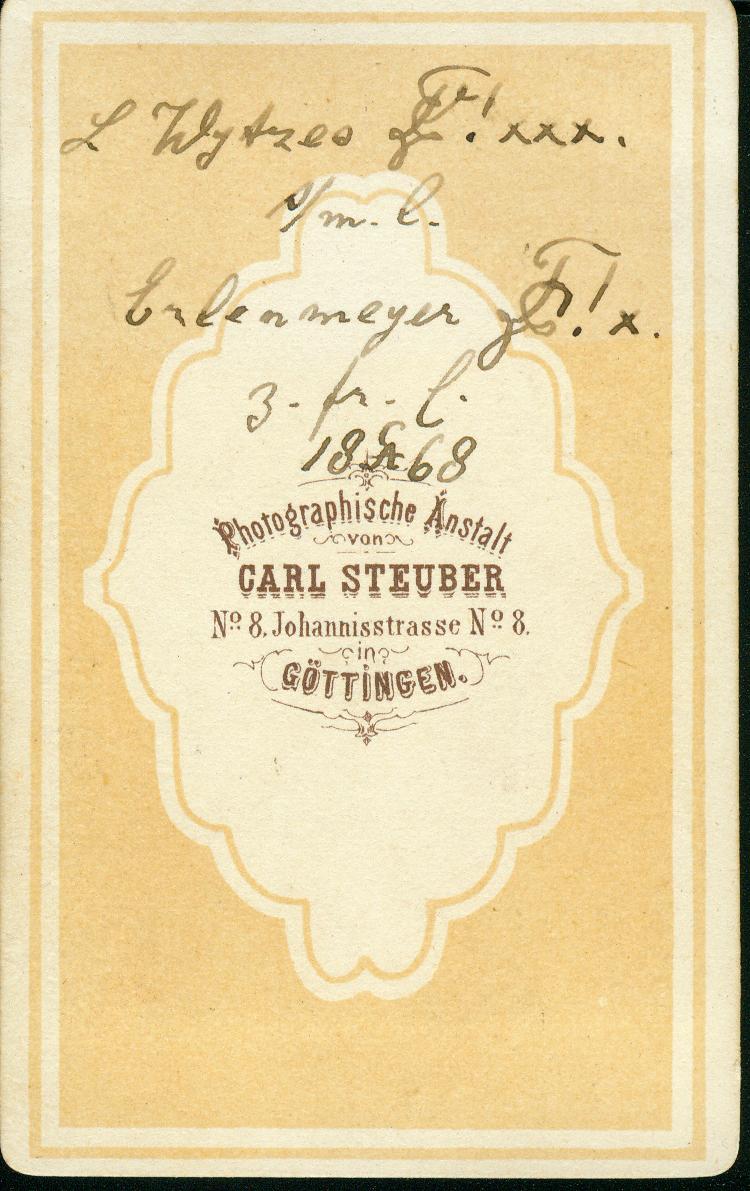 L Wytzes ! xxx.
s/m. l.
Erlenmeyer ! x.
z. fr. l.
18 68
Photographische Anstalt
von
CARL STEUBER
Nº 8, Johannisstrasse Nº 8.
in
GÖTTINGEN.